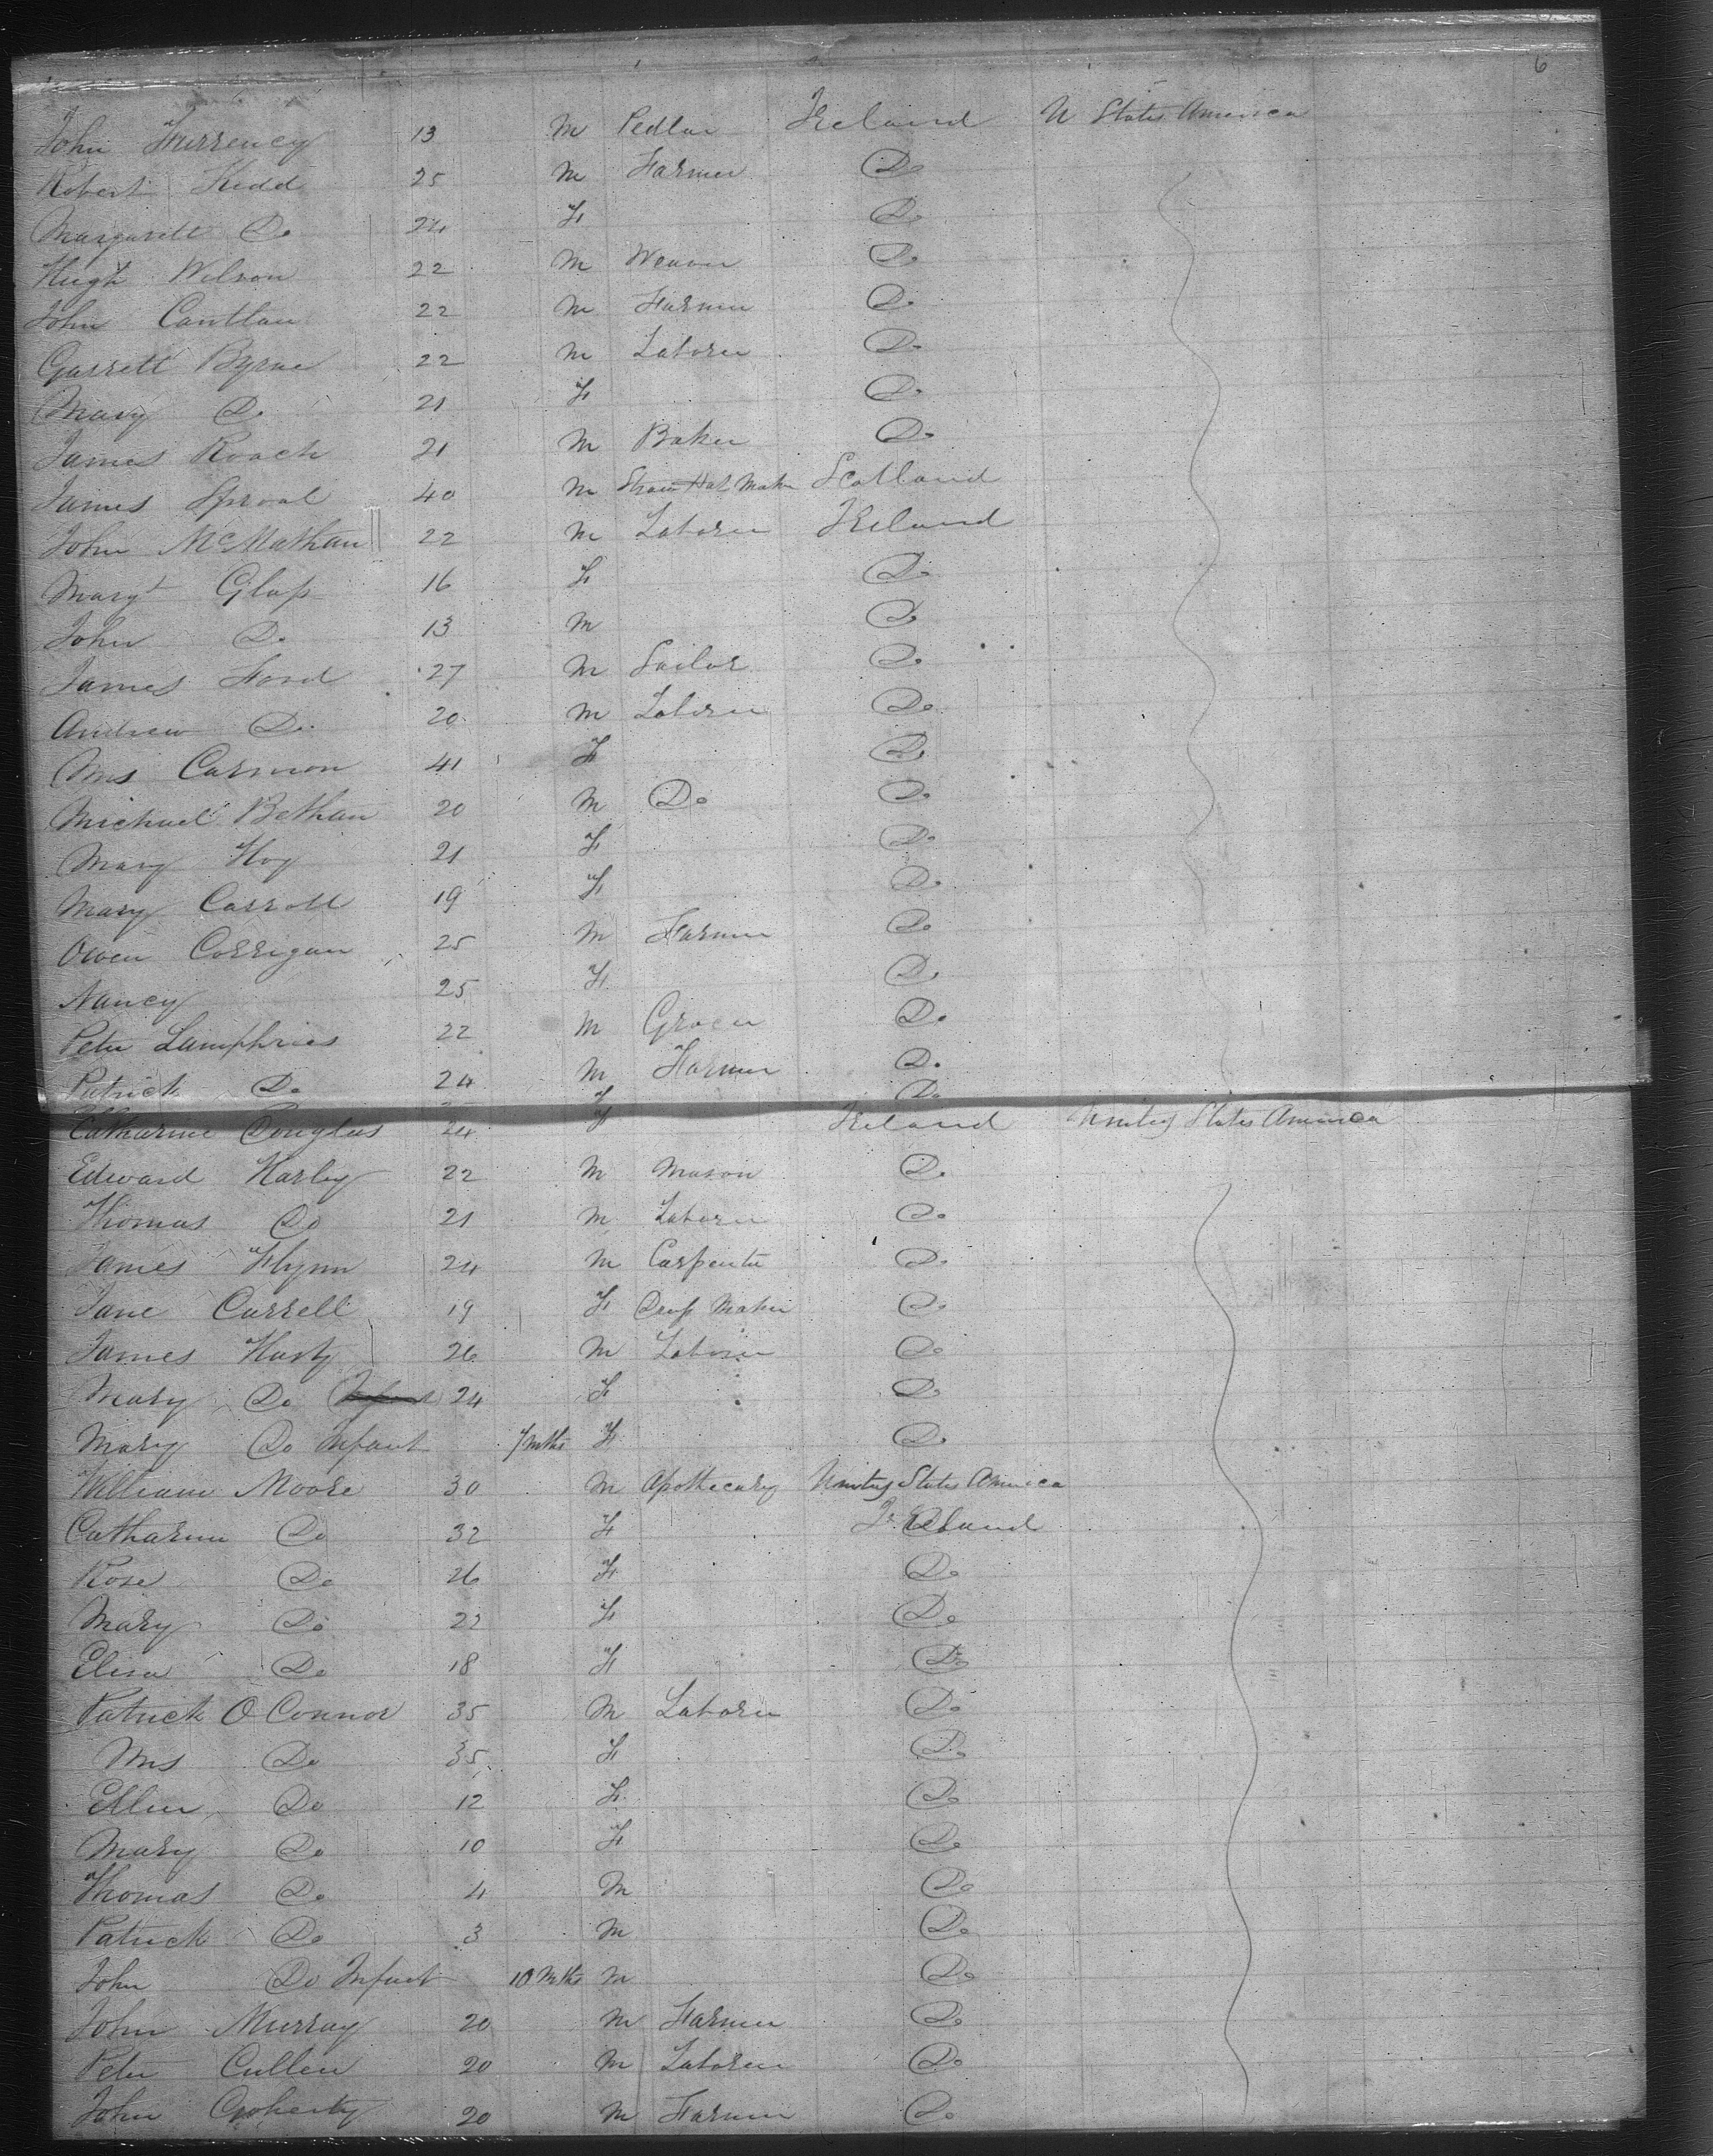 6
John Furrency 13 M Pedlar Ireland U States America
Robert Kidd 25 M Farmer Do
Margarett Do 24 F Do
Hugh Wilson 22 M Weaver Do
John Cantlan 22 M Farmer Do
Garrett Byrne 22 M Laborer Do
Mary Do 21 F Do
James Roach 21 M Baker Do
James Sproal 40 M Straw Hat Maker Scotland
John McMathan 22 M Laborer Ireland
Margt Glass 16 F Do
John Do 13 M Do
James Ford 27 M Sailor Do
Andrew Do 20 M Laborer Do
Mrs Carmon 41 F Do
Michael Bethan 20 M Do Do
Mary Hoy 21 F Do
Mary Carroll 19 F Do
Owen Corrigan 25 M Farmer Do
Nancy 25 F Do
Peter Lamphries 22 M Grocer Do
Patrick Do 24 M Farmer Do
F Do
Catharine Douglas 24 F Ireland United States America
Edward Harley 22 M Mason Do
Thomas Do 21 M Laborer Do
James Flynn 24 M Carpenter Do
Jane Carrell 19 F Dress Maker Do
James Harty 26 M Laborer Do
Mary Do Infant 24 F Do
Mary Do Infant 7 mths F Do
William Moore 30 M Apothecary United States America
Catharine Do 32 F Ireland
Rose Do 26 F Do
Mary Do 22 F Do
Eliza Do 18 F Do
Patrick O Connor 35 M Laborer Do
Mrs Do 35 F Do
Ellen Do 12 F Do
Mary Do 10 F Do
Thomas Do 4 M Do
Patrick Do 3 M Do
John Do Infant 10 Mths M Do
John Murray 20 M Farmer Do
Peter Cullen 20 M Laborer Do
John Goherty 20 M Farmer Do